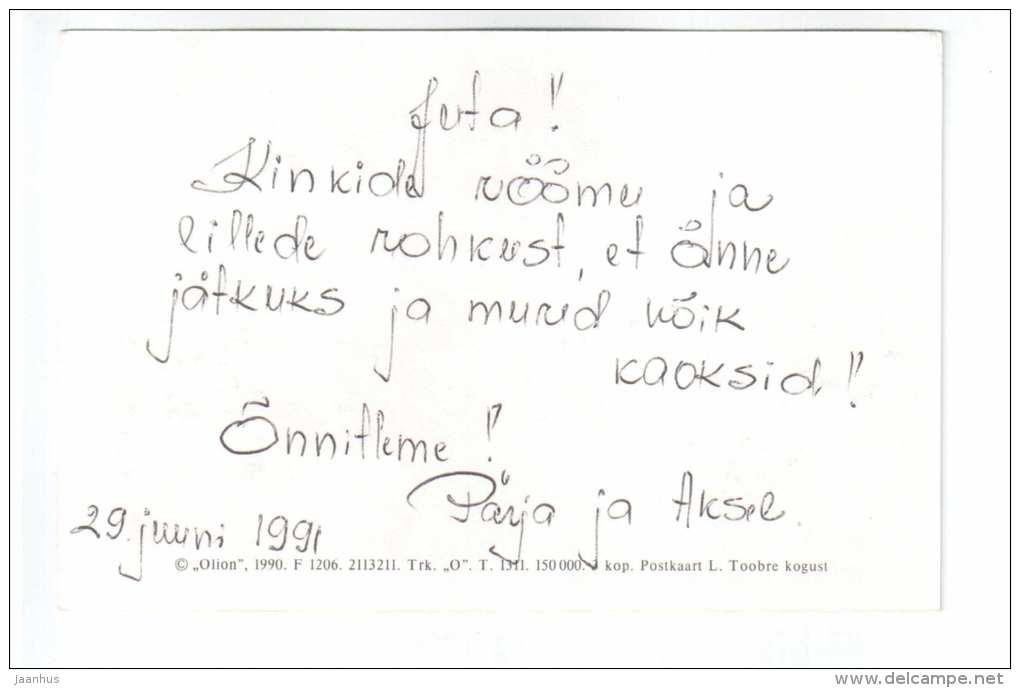 Juta!
Kinkida rõõmu ja
lillede rohkust, et õnne
jätkuks ja mured kõik
kaoksid!
Õnnitleme!
Pärja ja Aksel.
29. juuni 1991
© „Olion", 1990. F 1206. 2113211. Trk. „O". T. 1311. 150 000. kop. Postkaart L. Toobre kogust
Jaanhus
delcampe.net